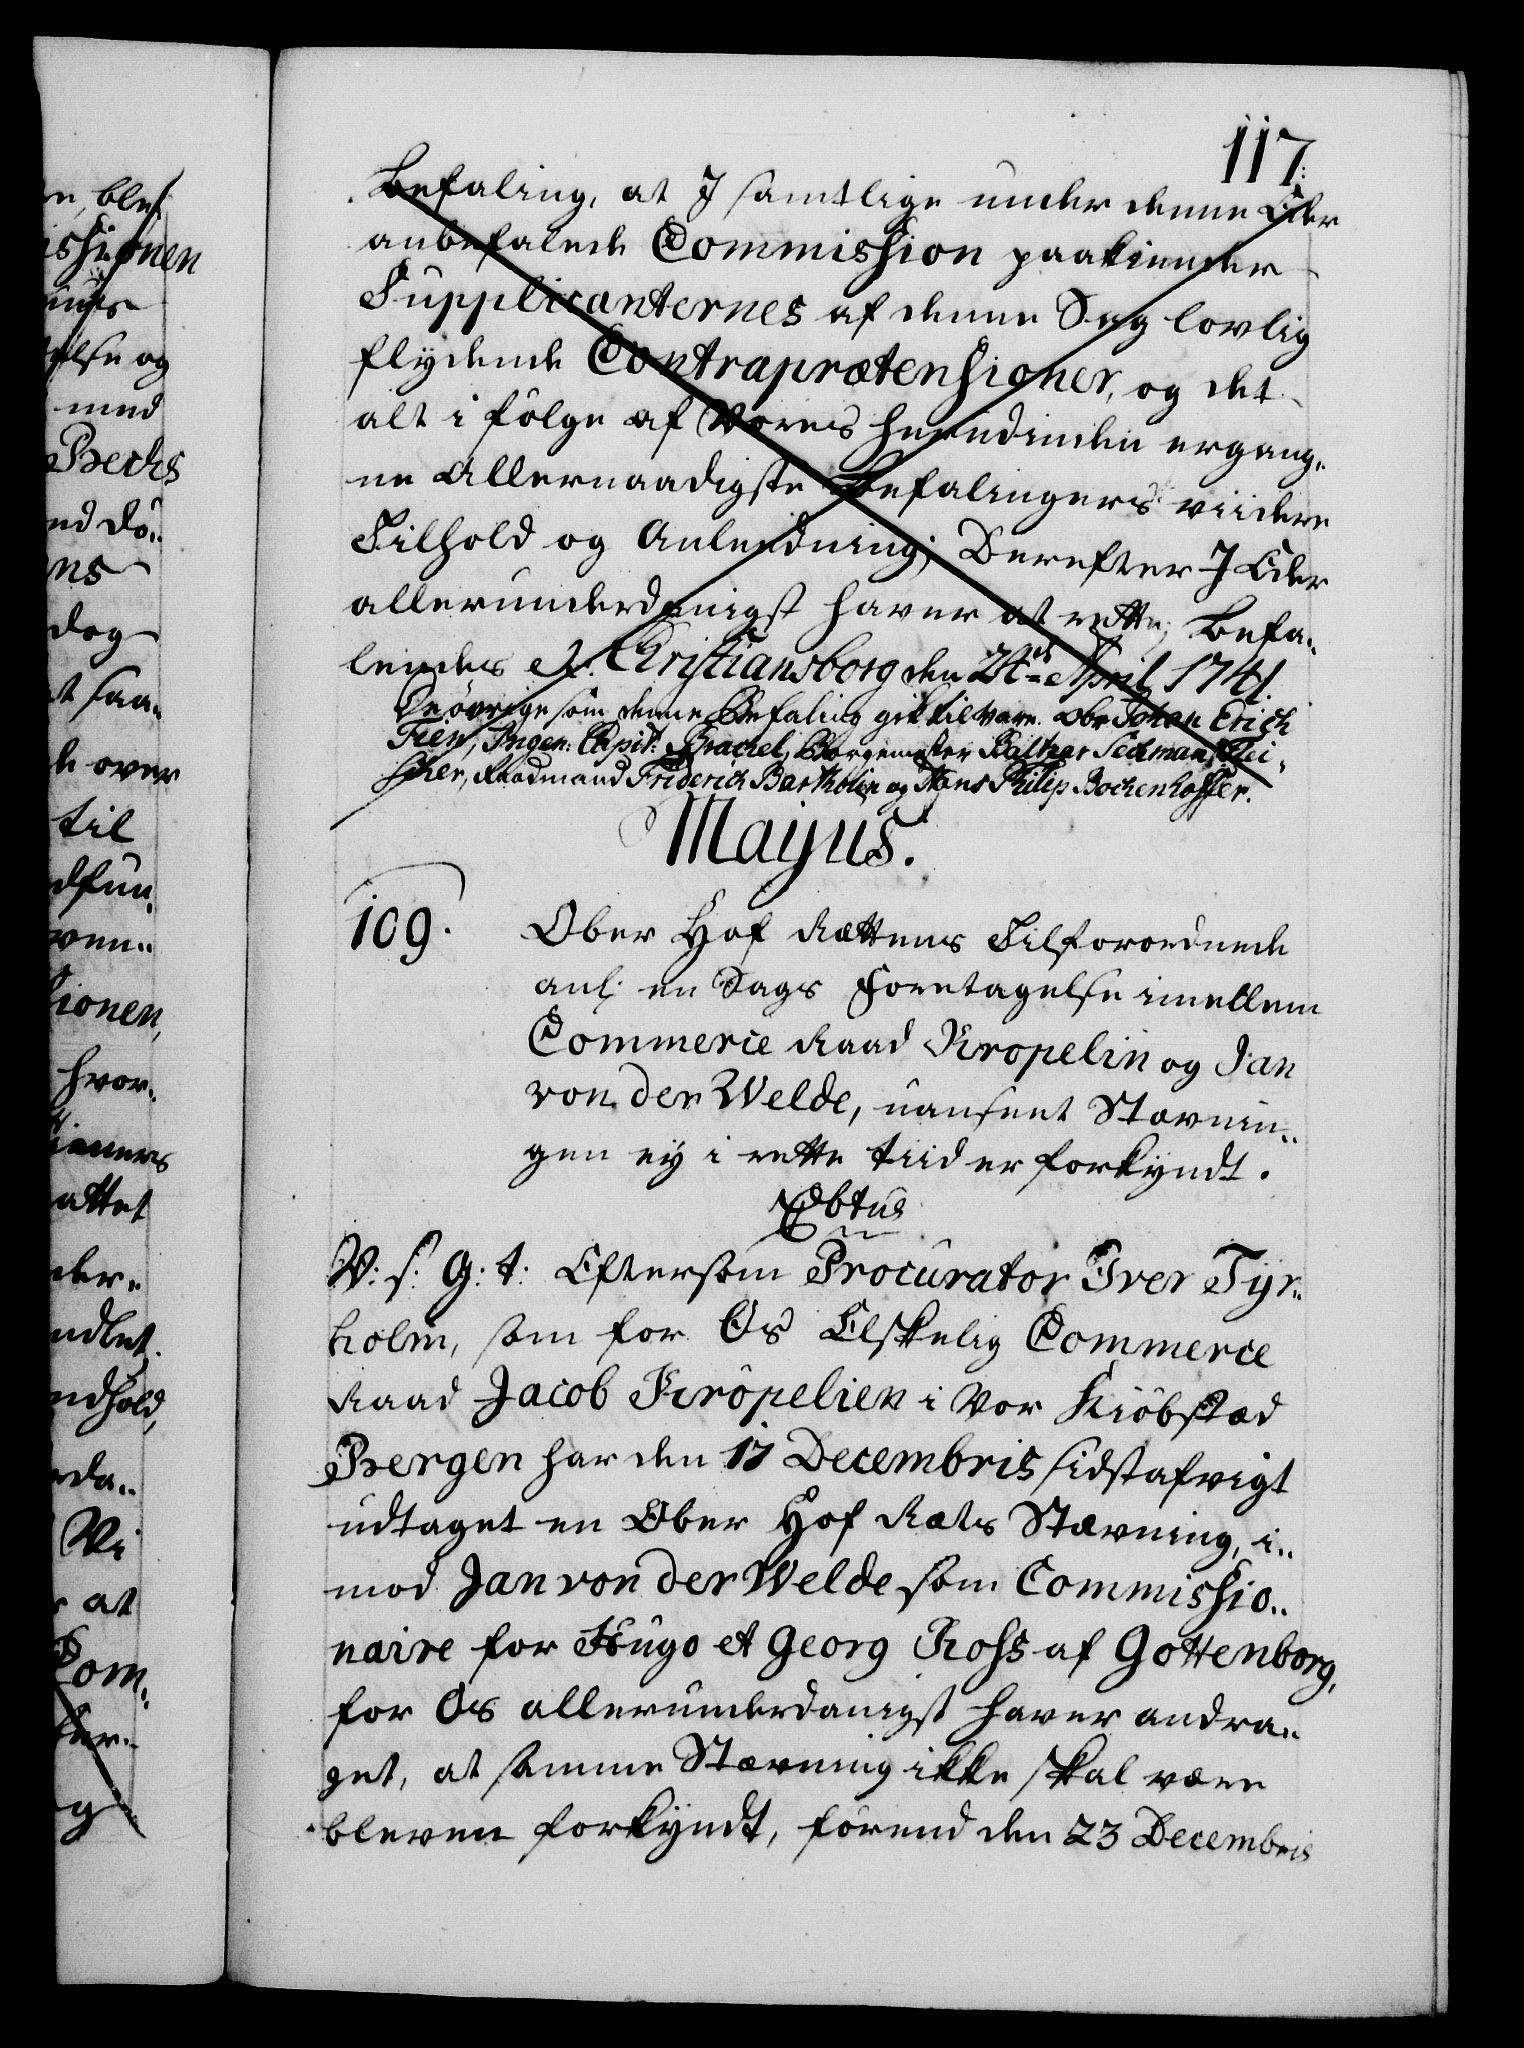 117.
Befaling, at I samtlige under denne Eder
anbefalede Commission paakiender
Supplicanternes af denne Sag lovlig
flydende Contraprætensioner, og det
alt i følge af Vores herudinden ergang„
ne Allernaadigste Befalingers viidere
Tilhold og Anleedning; Derefter I Eder
allerunderdanigst haver at rette, Befa„
lendes etc. Christiansborg den 24de April 1741.
De øvrige som denne Befaling gik til vare. Obr Johan Erich
Tien, Ingen: Capit: Brachel, Borgemester Baltzer Seckman, Flei„
scher, Raadmand Friderich Bartholin og Hans Philip Bockenhoffer.
Majus.
109.
Ober Hof Rættens Tilforordnede
anl: en Sags Foretagelse imellem
Commerce Raad Kropelin og Jan
von der Welde, uanseet Stævnin„
gen ey i rette tiid er forkyndt.
V: s: G: t: Eftersom Procurator Iver Tyr„
holm, som for Os Elskelig Commerce
Raad Jacob Krøpelien i Vor Kiøbstæd
Bergen har den 17 Decembris sidstafvigt
udtaget en Ober Hof Rets Stævning, i„
mod Jan von der Welde som Commissio„
naire for Hugo et Georg Ross af Gottenborg,
for Os allerunderdanigst haver andra„
get, at samme Stævning ikke skal være
bleven forkyndt, førend den 23 Decembris